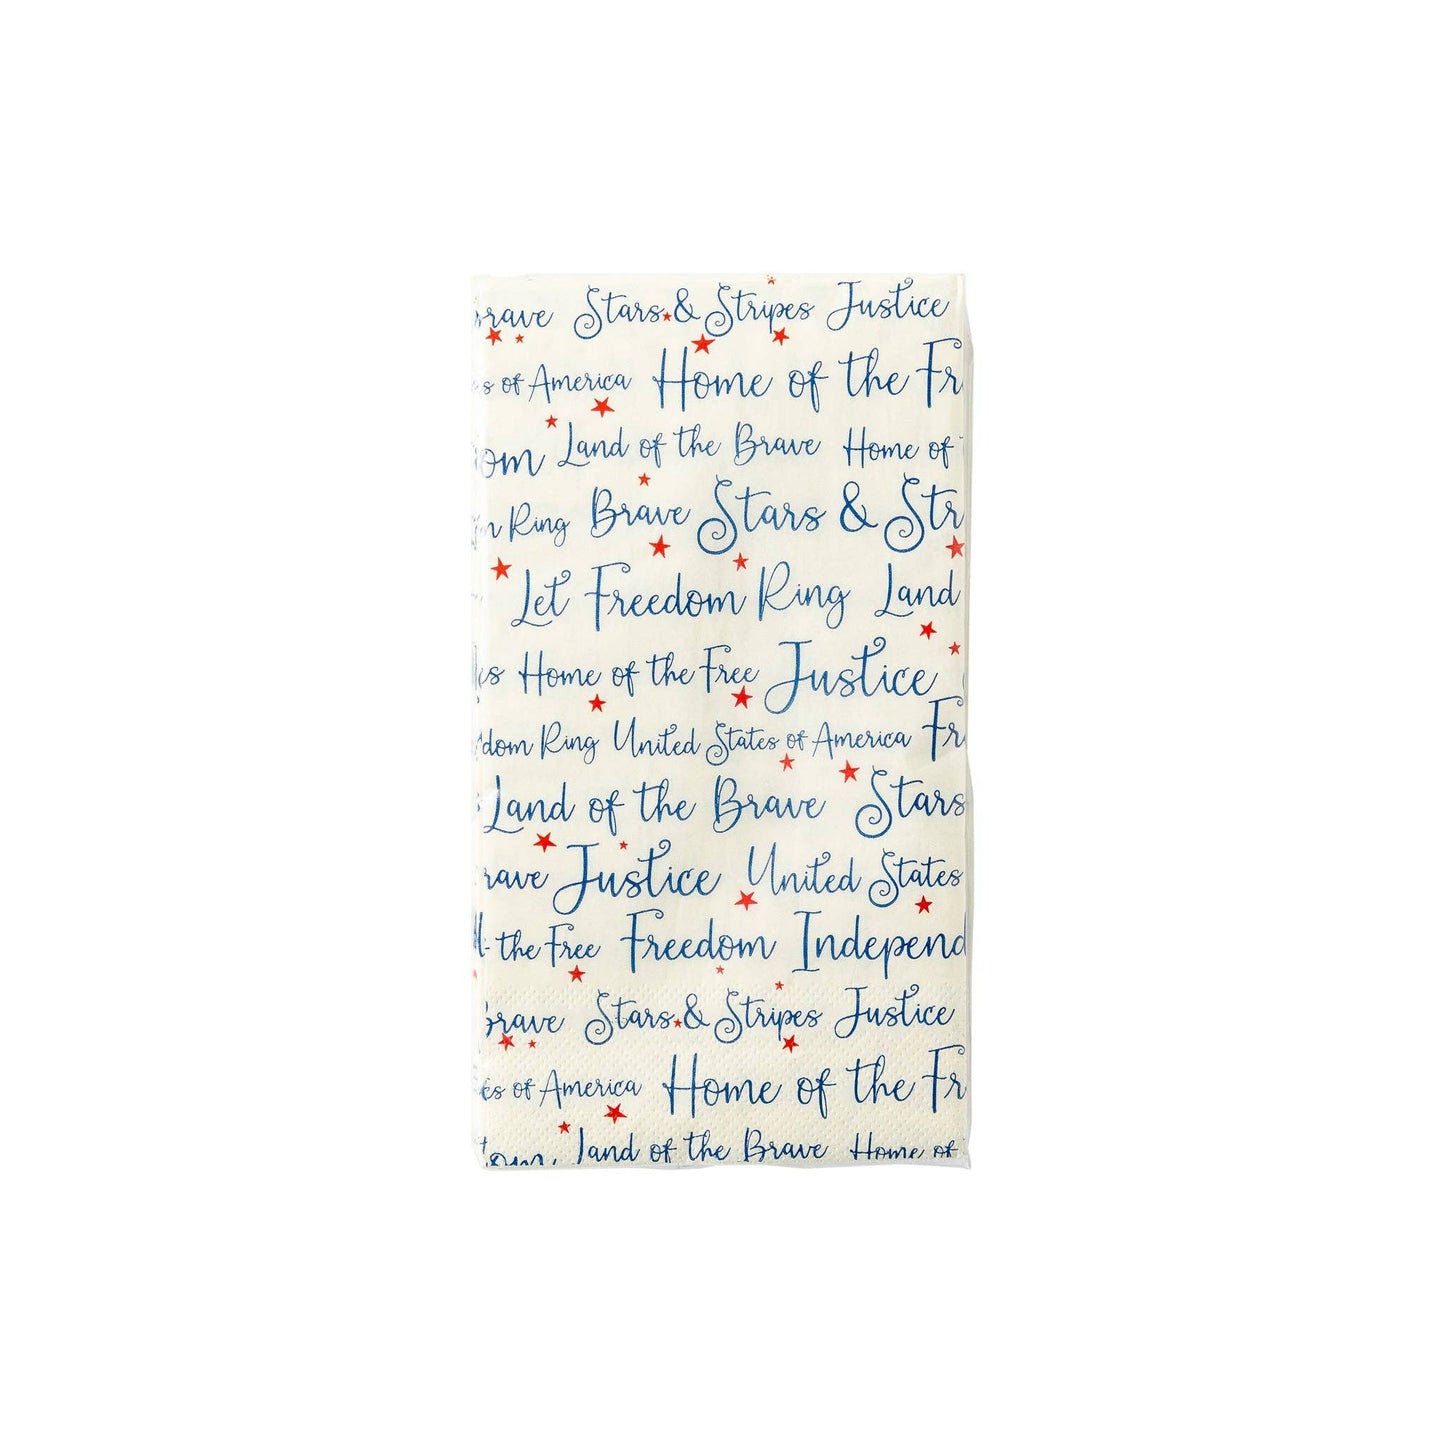 Brave Stars & Stripes Justice
of America Home of the Fr
om Land of the Brave Home of
Ring Brave Stars & Str
Let Freedom Ring Land
Home of the Free Justice
dom Ring United States of America Fr
Land of the Brave Stars
rave Justice United States
the Free Freedom Independ
Brave Stars & Stripes Justice
es of America Home of the Fr
om Land of the Brave Home of